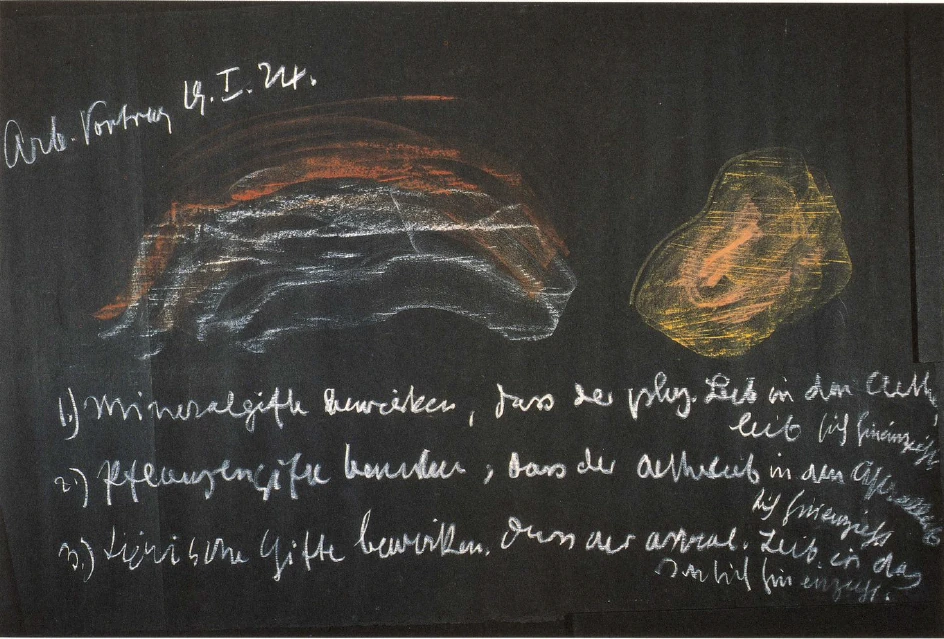 Arb. Vortrag 19. I. 24.
1.) Mineralgifte bewirken, dass der phys. Leib in den Aeth,
leib sich hineinzieht
2.) Pflanzengifte bewirken, dass der aetherleib in den Astralleib
sich hineinzieht
3.) tierische Gifte bewirken. dass der astral. Leib in das
hineinzieht.